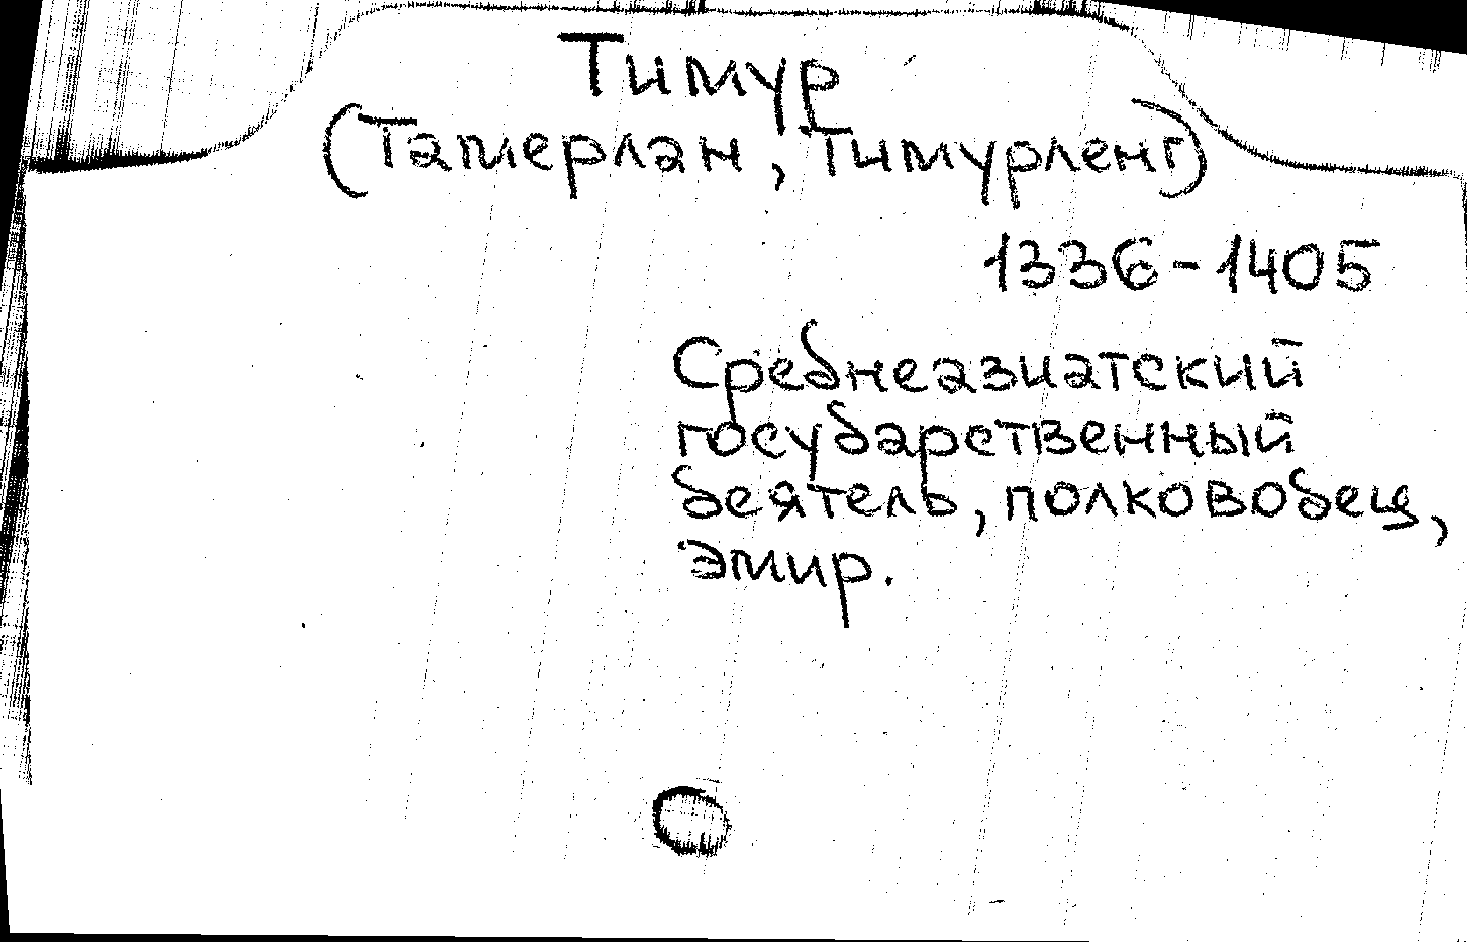 Тимур
(Тамерлан, Тимурленг)
1336-1405
Среднеазиатский
государственный
деятель, полководец,
эмир.